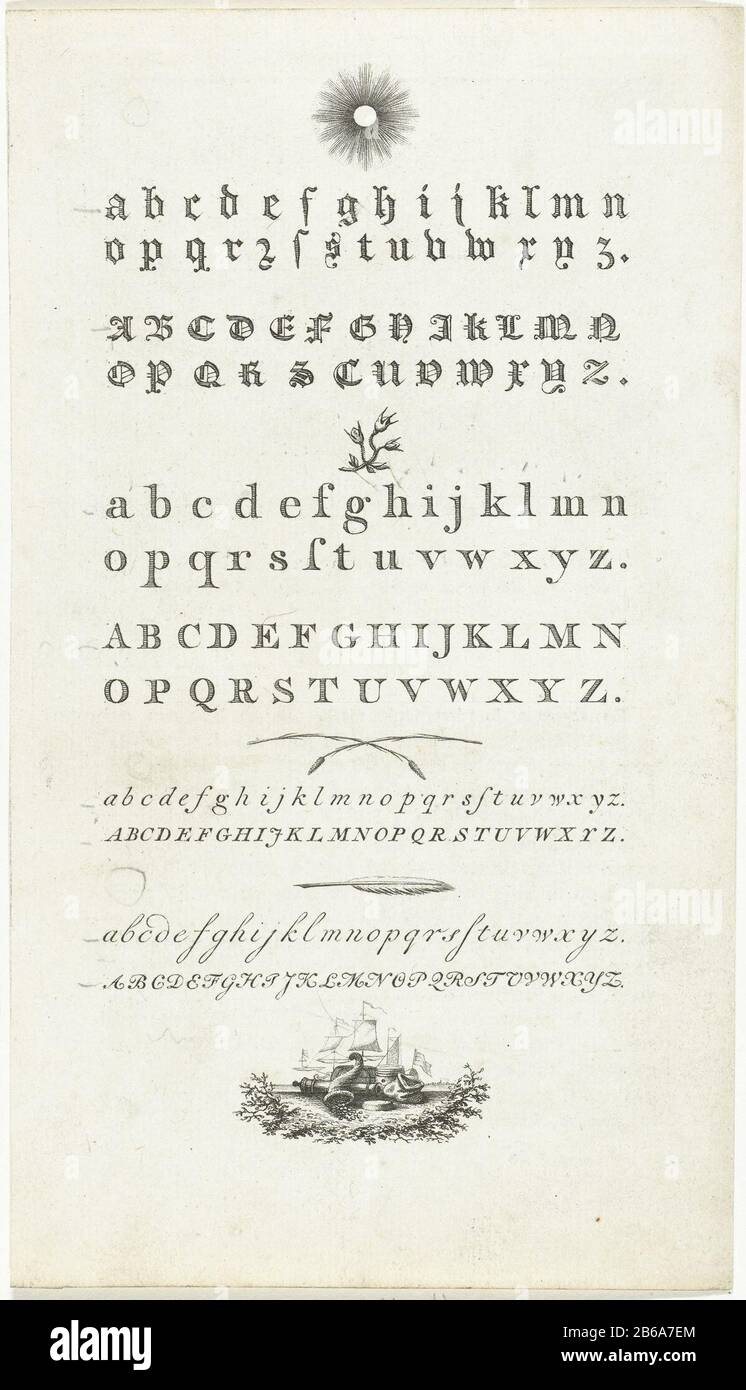 a b c d e f g h i j k l m n
o p q r ꝛ ſ s t u v w x y z.
A B C D E F G H I K L M N
O P Q R S T U V W X Y Z.
a b c d e f g h i j k l m n
o p q r s ſ t u v w x y z.
A B C D E F G H I J K L M N
O P Q R S T U V W X Y Z.
a b c d e f g h i j k l m n o p q r s ſ t u v w x y z.
A B C D E F G H I J K L M N O P Q R S T U V W X Y Z.
a b c d e f g h i j k l m n o p q r s ſ t u v w x y z.
A B C D E F G H I J K L M N O P Q R S T U V W X Y Z.
alamy
Image ID: 2B6A7EM
www.alamy.com